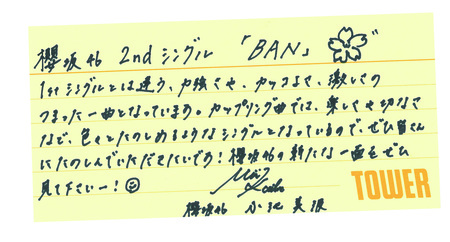 櫻坂46 2ndシングル 「BAN」
1stシングルとは違う、力強さや、カッコよさ、激しさの
つまった一曲となっています。カップリング曲では、楽しさや切なさ
など、色々とたのしめるようなシングルとなっているので、ぜひ皆さん
にたのしんでいただきたいです!櫻坂46の新たな一面をぜひ
見て下さいー!
櫻坂46 小池美波
TOWER